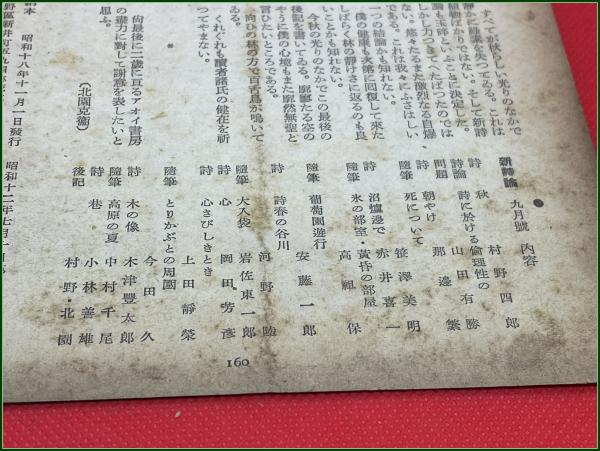 すべてが秋らしい光りのなかで
静かに純粋を失つてゐる。これは
植物ばかりではない。そして新詩
論も玉砕といふことに決定した。
しかし力つきてへたばつたのでは
ない。悠々たるまた激烈なる自爆
である。これは我々にふさはしい
一つの結論かも知れない。
僕の健康も次第に回復して来た
しばらく林の静けさに返るのも良
いことかも知れない。
今秋の光りのなかでこの最後の
後記を書いてゐる。寥寥たる空の
やうに僕の心境もまた廓然無聖と
言ひたいところである。
向ひの林の方で百舌鳥が鳴いて
ゐる。
くれぐれも読者諸氏の健在を祈
つてやまない。
尚最後に二歳に亘るアオイ書房
の盡力に對して謝意を表したいと
思ふ。
(北園克衞)
昭和十八年十一月一日發行
野區新井町五九四
昭和十二年七月十
新詩論 九月號 内容
詩 秋 村野四郎
詩論 詩に於ける倫理性の
問題 山田有勝
詩 朝やけ 那邊繁
隨筆 死について 笹澤美明
詩 沼爐邊で 赤井喜一
隨筆 氷の部室・黄昏の部屋
高祖保
隨筆 葡萄園遊行 安藤一郎
詩 詩春の谷川 河野睦
隨筆 大入袋 岩佐東一郎
詩 心 岡田芳彦
詩 心さびしきとき
上田靜榮
隨筆 とりかぶとの周圍
今田久
詩 木の像 木津豐太郎
隨筆 高原の夏 中村千尾
詩 巷 小林善雄
後記 村野・北園
160